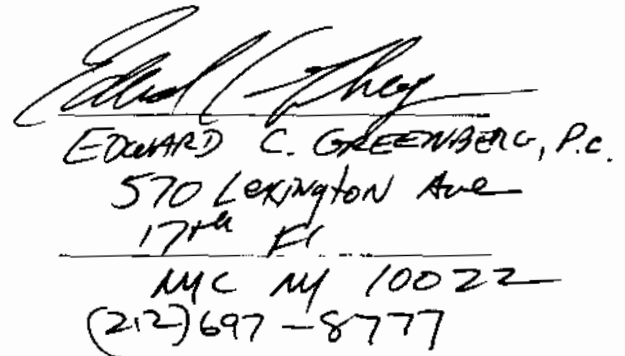 EDWARD C. GREENBERG, P.C.
570 Lexington Ave
17th Fl
NYC NY 10022
(212)697-8777